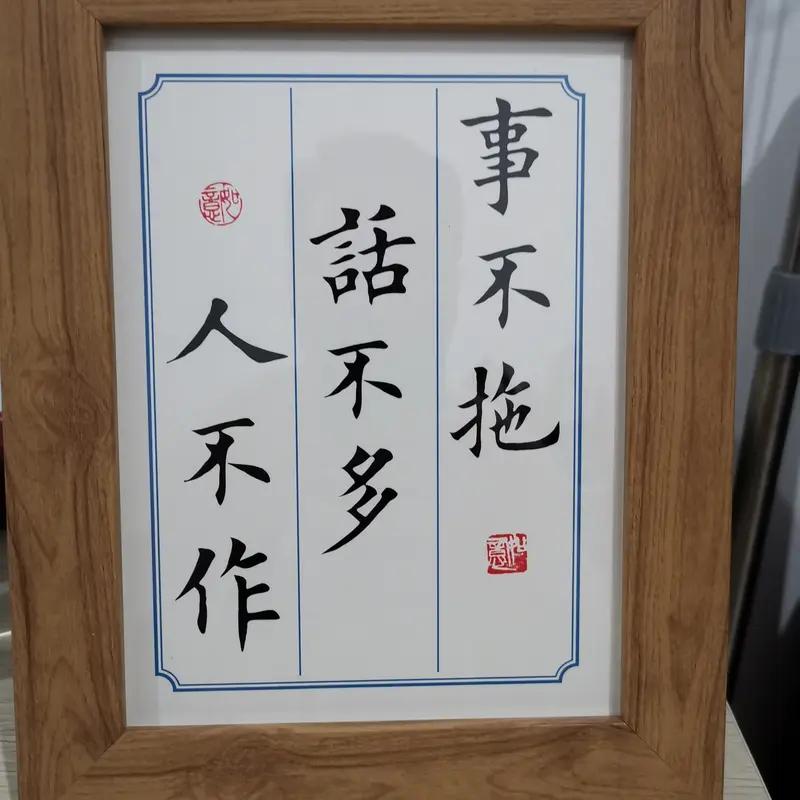 事不拖
話不多
人不作
如意